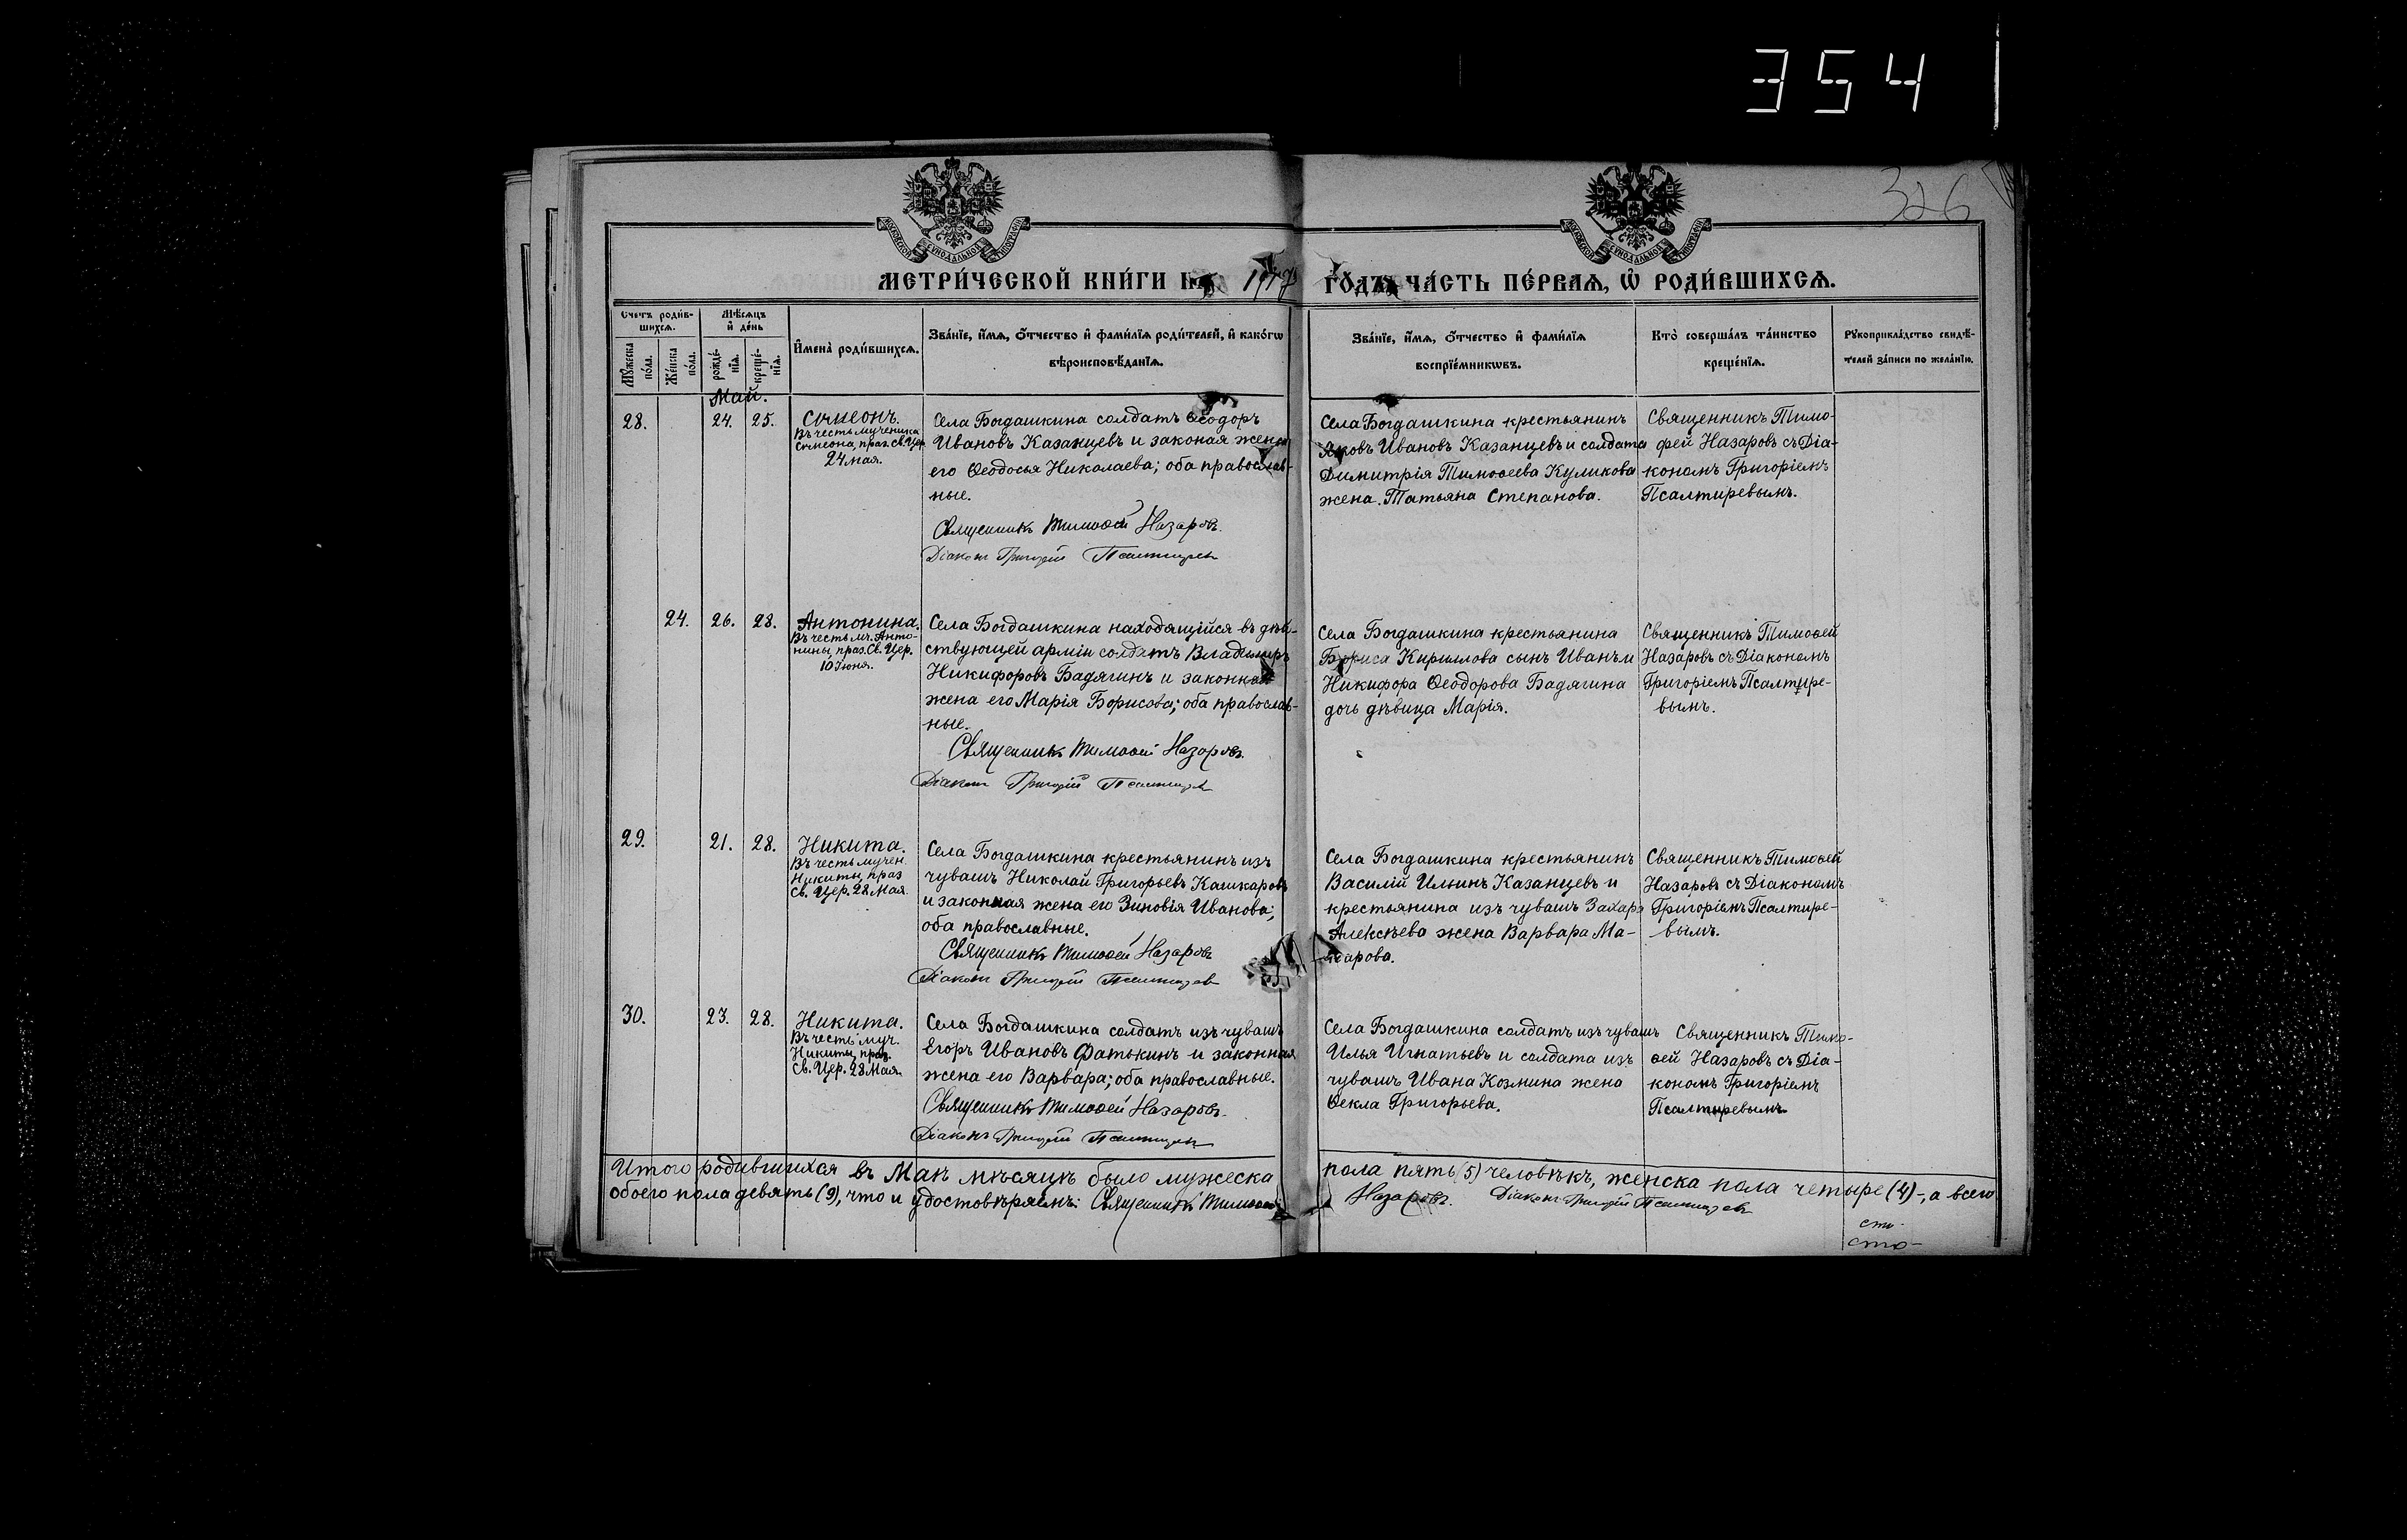 354
326
МОСКОВСКОЙ СѴНОДАЛЬНОЙ ТИПОГРАФІИ
МОСКОВСКОЙ СѴНОДАЛЬНОЙ ТИПОГРАФІИ
МЕТРИ́ЧЕСКОЙ КНИ́ГИ НА 1917 ГО́ДЪ ЧА́СТЬ ПЕ́РВАѦ, Ѡ҆ РОДИ́ВШИХСѦ.
Счетъ роди́в-
шихсѧ.
Мꙋ́жеска
по́ла.
Же́нска
по́ла.
Мѣ́сѧцъ
и҆ де́нь
рожде́-
нїѧ.
креще́-
нїѧ.
И҆мена̀ роди́вшихсѧ.
Зва́нїе, и҆́мѧ, ѻ҆́тчество и҆ фами́лїѧ роди́телей, и҆ како́гѡ
вѣроисповѣ́данїѧ.
Зва́нїе, и҆́мѧ, ѻ҆́тчество и҆ фами́лїѧ
воспрїе́мникѡвъ.
Кто̀ соверша́лъ та́инство
креще́нїѧ.
Рꙋкоприкла́дство свидѣ́-
телей за́писи по жела́нїю.
Май.
28.
24.
25.
Сѵмеонъ.
Въ честь мученика
Сѵмеона, праз. Св. Цер.
24 мая.
Села Богдашкина солдатъ Ѳеодоръ
Ивановъ Казанцевъ и законая жена
его Ѳеодосья Николаева; оба православ-
ные.
Священникъ Тимоѳей Назаровъ.
Діаконъ Григорій Псалтирев
Села Богдашкина крестьянинъ
Яковъ Ивановъ Казанцевъ и солдата
Димитрія Тимоѳеева Куликова
жена Татьяна Степанова.
Священникъ Тимо-
фей Назаровъ съ Діа-
кономъ Григоріемъ
Псалтиревымъ.
24.
26.
28.
Антонина.
Въ честь мч. Анто-
нины, праз. Св. Цер.
10 Іюня.
Села Богдашкина находящійся въ дѣй-
ствующей арміи солдатъ Владимиръ
Никифоровъ Бадягинъ и законная
жена его Марія Борисова; оба православ-
ные.
Священникъ Тимоѳей Назаровъ.
Діаконъ Григорій Псалтирев
Села Богдашкина крестьянина
Бориса Кириллова сынъ Иванъ и
Никифора Ѳеодорова Бадягина
дочь дѣвица Марія.
Священникъ Тимоѳей
Назаровъ съ Діакономъ
Григоріемъ Псалтире-
вымъ.
29.
21.
28.
Никита.
Въ честь мучен.
Никиты, праз
Св. Цер. 28 Мая.
Села Богдашкина крестьянинъ изъ
чувашъ Николай Григорьевъ Кашкаровъ
и законная жена его Зиновія Иванова;
оба православные.
Священникъ Тимоѳей Назаровъ
Діаконъ Григорій Псалтирев
Села Богдашкина крестьянинъ
Василій Ильинъ Казанцевъ и
крестьянина изъ чувашъ Захара
Алексѣева жена Варвара Ма-
карова.
Священникъ Тимоѳей
Назаровъ съ Діакономъ
Григоріемъ Псалтире-
вымъ.
30.
23.
28.
Никита.
Въ честь муч.
Никиты, праз.
Св. Цер. 28 Мая.
Села Богдашкина солдатъ изъ чувашъ
Егоръ Ивановъ Фатькинъ и законная
жена его Варвара; оба православные.
Священникъ Тимоѳей Назаровъ.
Діаконъ Григорій Псалтирев
Села Богдашкина солдатъ изъ чувашъ
Илья Игнатьевъ и солдата изъ
чувашъ Ивана Козмина жена
Ѳекла Григорьева.
Священникъ Тимо-
ѳей Назаровъ съ Діа-
кономъ Григоріемъ
Псалтыревымъ
Итого родившихся въ Маѣ мѣсяцѣ было мужеска пола пять (5) человѣкъ, женска пола четыре (4)-, а всего
обоего пола девять (9), что и удостовѣряемъ: Священникъ Тимоѳей Назаровъ. Діаконъ Григорій Псалтирев